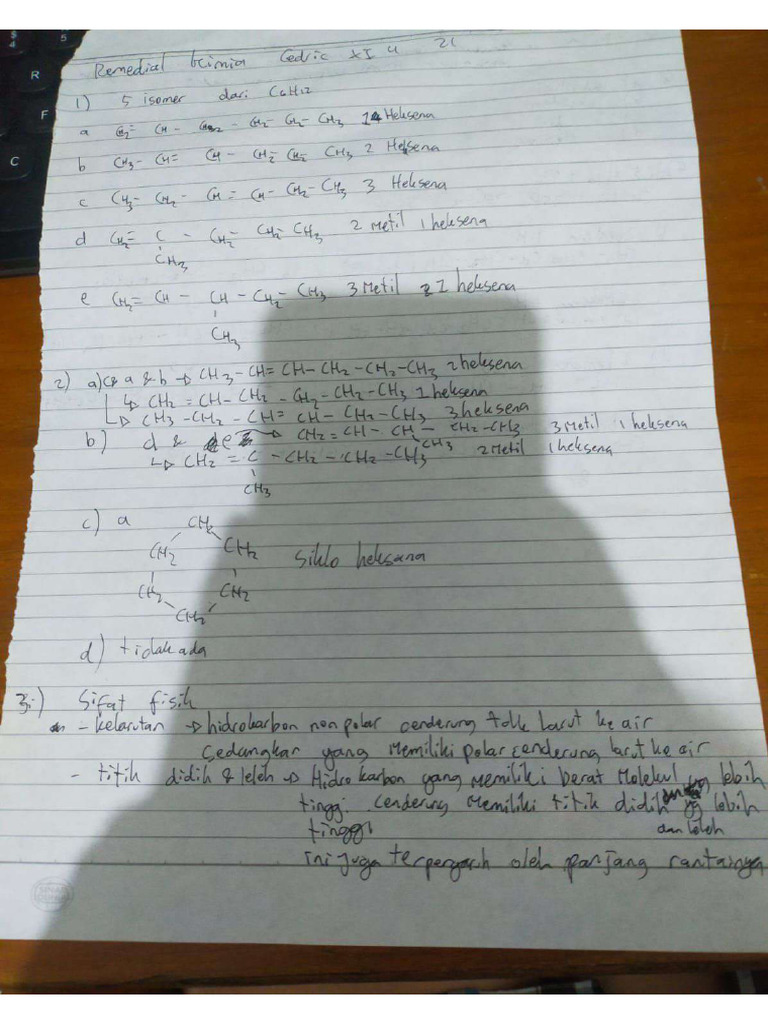 Remedial kimia Cedric XI 4 21
1) 5 isomer dari C6H12
a CH2= CH - CH2 - CH2 - CH2 - CH3 1 Heksena
b CH3- CH= CH - CH2- CH2- CH3 2 Heksena
c CH3- CH2 - CH = CH - CH2 - CH3 3 Heksena
d CH2= C - CH2= CH2= CH3 2 Metil 1 heksena
CH3
e CH2= CH - CH - CH2 - CH3 3 Metil 1 heksena
CH3
2) a) a & b → CH3 - CH= CH- CH2 - CH2 - CH3 2 heksena
↳ CH2 = CH- CH2 - CH2 - CH2 - CH3 1 heksena
↳ CH3 - CH2 - CH= CH - CH2 - CH3 3 heksena
b) d & e → CH2= CH - CH - CH2 - CH3 3 Metil 1 heksena
CH3
↳ CH2 = C - CH2 - CH2 - CH3 2 Metil 1 heksena
CH3
c) a CH2
CH2 CH2 siklo heksana
CH2 CH2
CH2
d) tidak ada
3) Sifat fisik
- kelarutan → hidrokarbon non polar cenderung tdk larut ke air
sedangkan yang memiliki polar cenderung larut ke air
- titik didih & leleh → Hidrokarbon yang memiliki berat Molekul yg lebih
tinggi cenderung memiliki titik didih yg lebih
tinggi dan leleh
ini juga terpengaruh oleh panjang rantainya